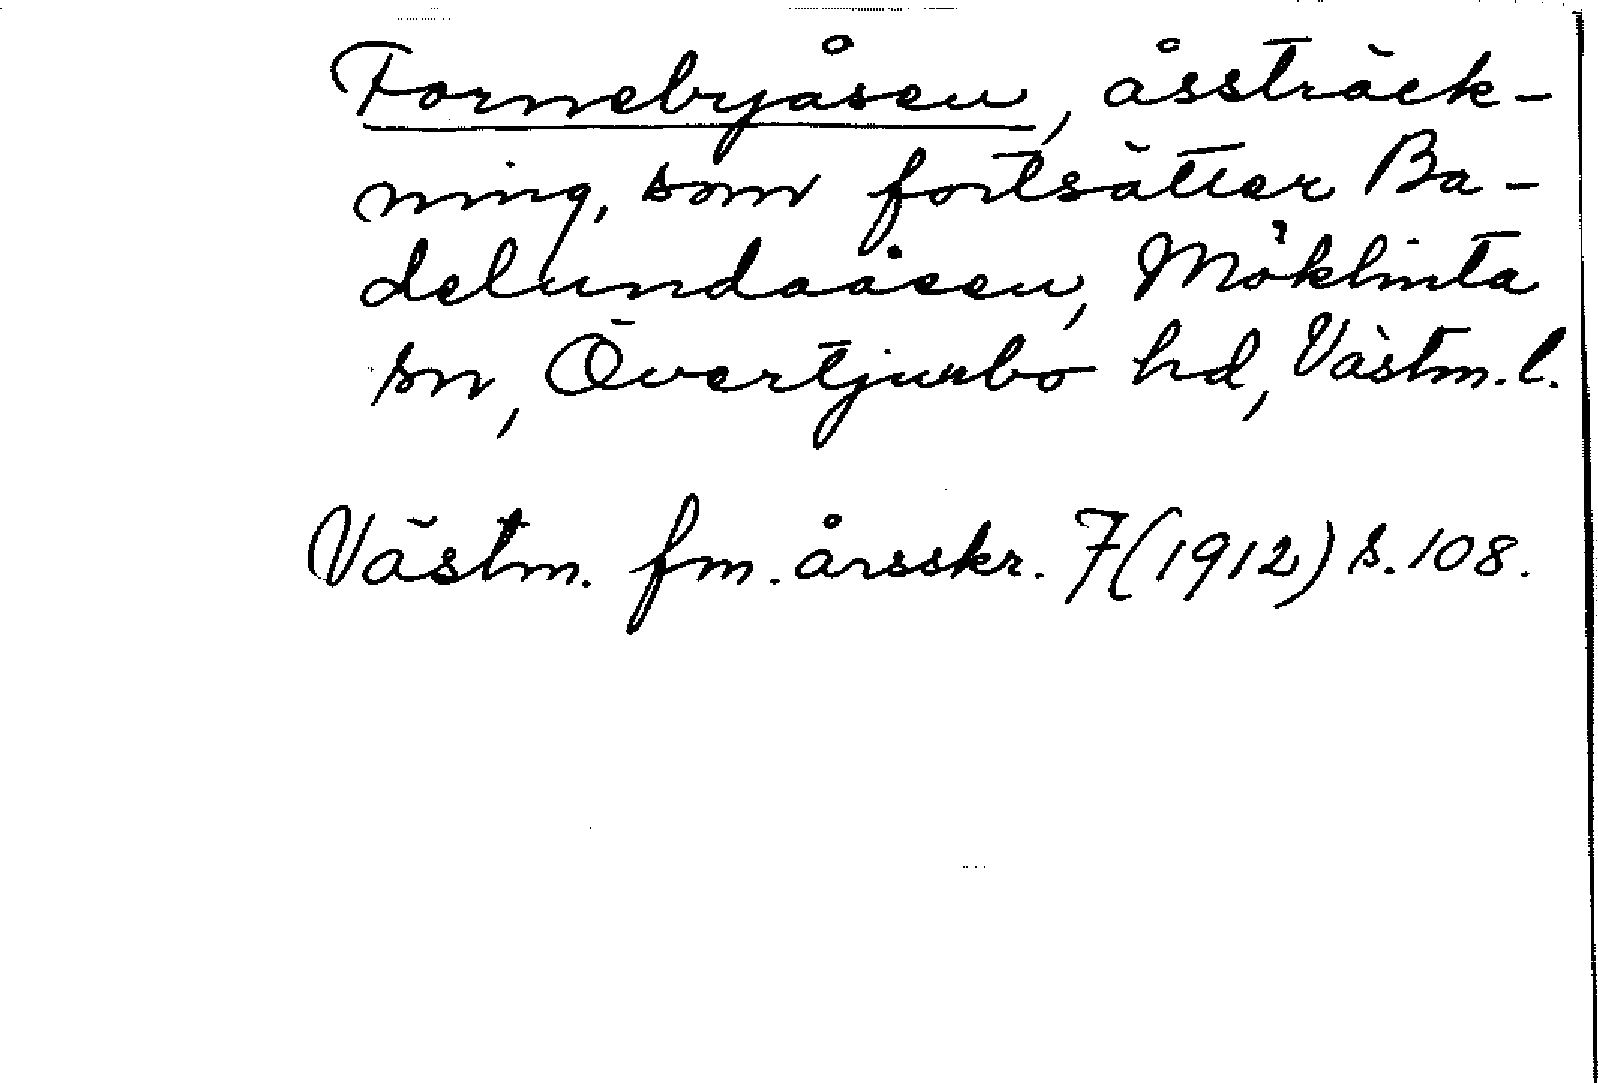 Fornebyåsen, åssträck-
ning, som fortsätter Ba-
delundaåsen, Möklinta
sn, Övertjurbo hd, Västm. l.
Västm. fm. årsskr. 7(1912) s. 108.